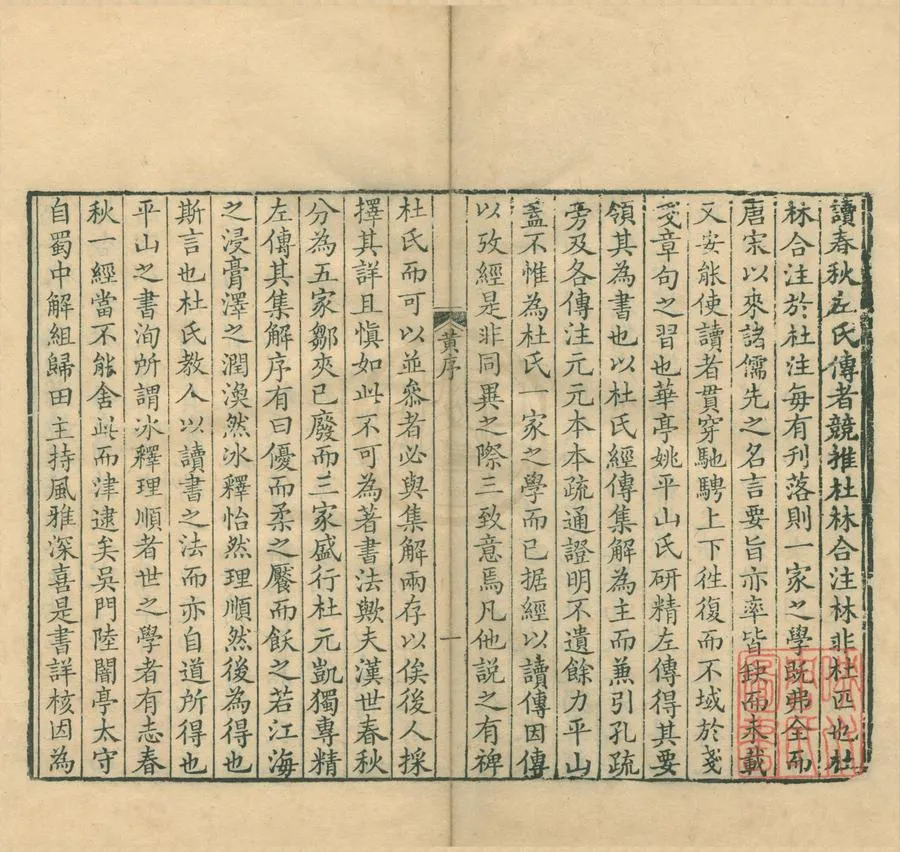 讀春秋左氏傳者競推杜林合注林非杜匹也杜
林合注於杜注每有刊落則一家之學既弗全而
唐宋以來諸儒先之名言要旨亦率皆鈌而未載
又安能使讀者貫穿馳騁上下徃復而不域於箋
箋章句之習也華亭姚平山氏硏精左傳得其要
領其為書也以杜氏經傳集解為主而兼引孔疏
旁及各傳注元元本本疏通證明不遺餘力平山
葢不惟為杜氏一家之學而已据經以讀傳因傳
以攷經是非同異之際三致意焉凡他説之有禆
黄序
一
杜氏而可以並叅者必與集解兩存以俟後人採
擇其詳且慎如此不可為著書法歟夫漢世春秋
分為五家鄒夾已廢而三家盛行杜元凱獨專精
左傳其集解序有曰優而柔之饜而飫之若江海
之浸膏澤之潤渙然冰釋怡然理順然後為得也
斯言也杜氏教人以讀書之法而亦自道所得也
平山之書洵所謂冰釋理順者世之學者有志春
秋一經當不能舍此而津逮矣吳門陸闇亭太守
自蜀中解組歸田主持風雅深喜是書詳核因為